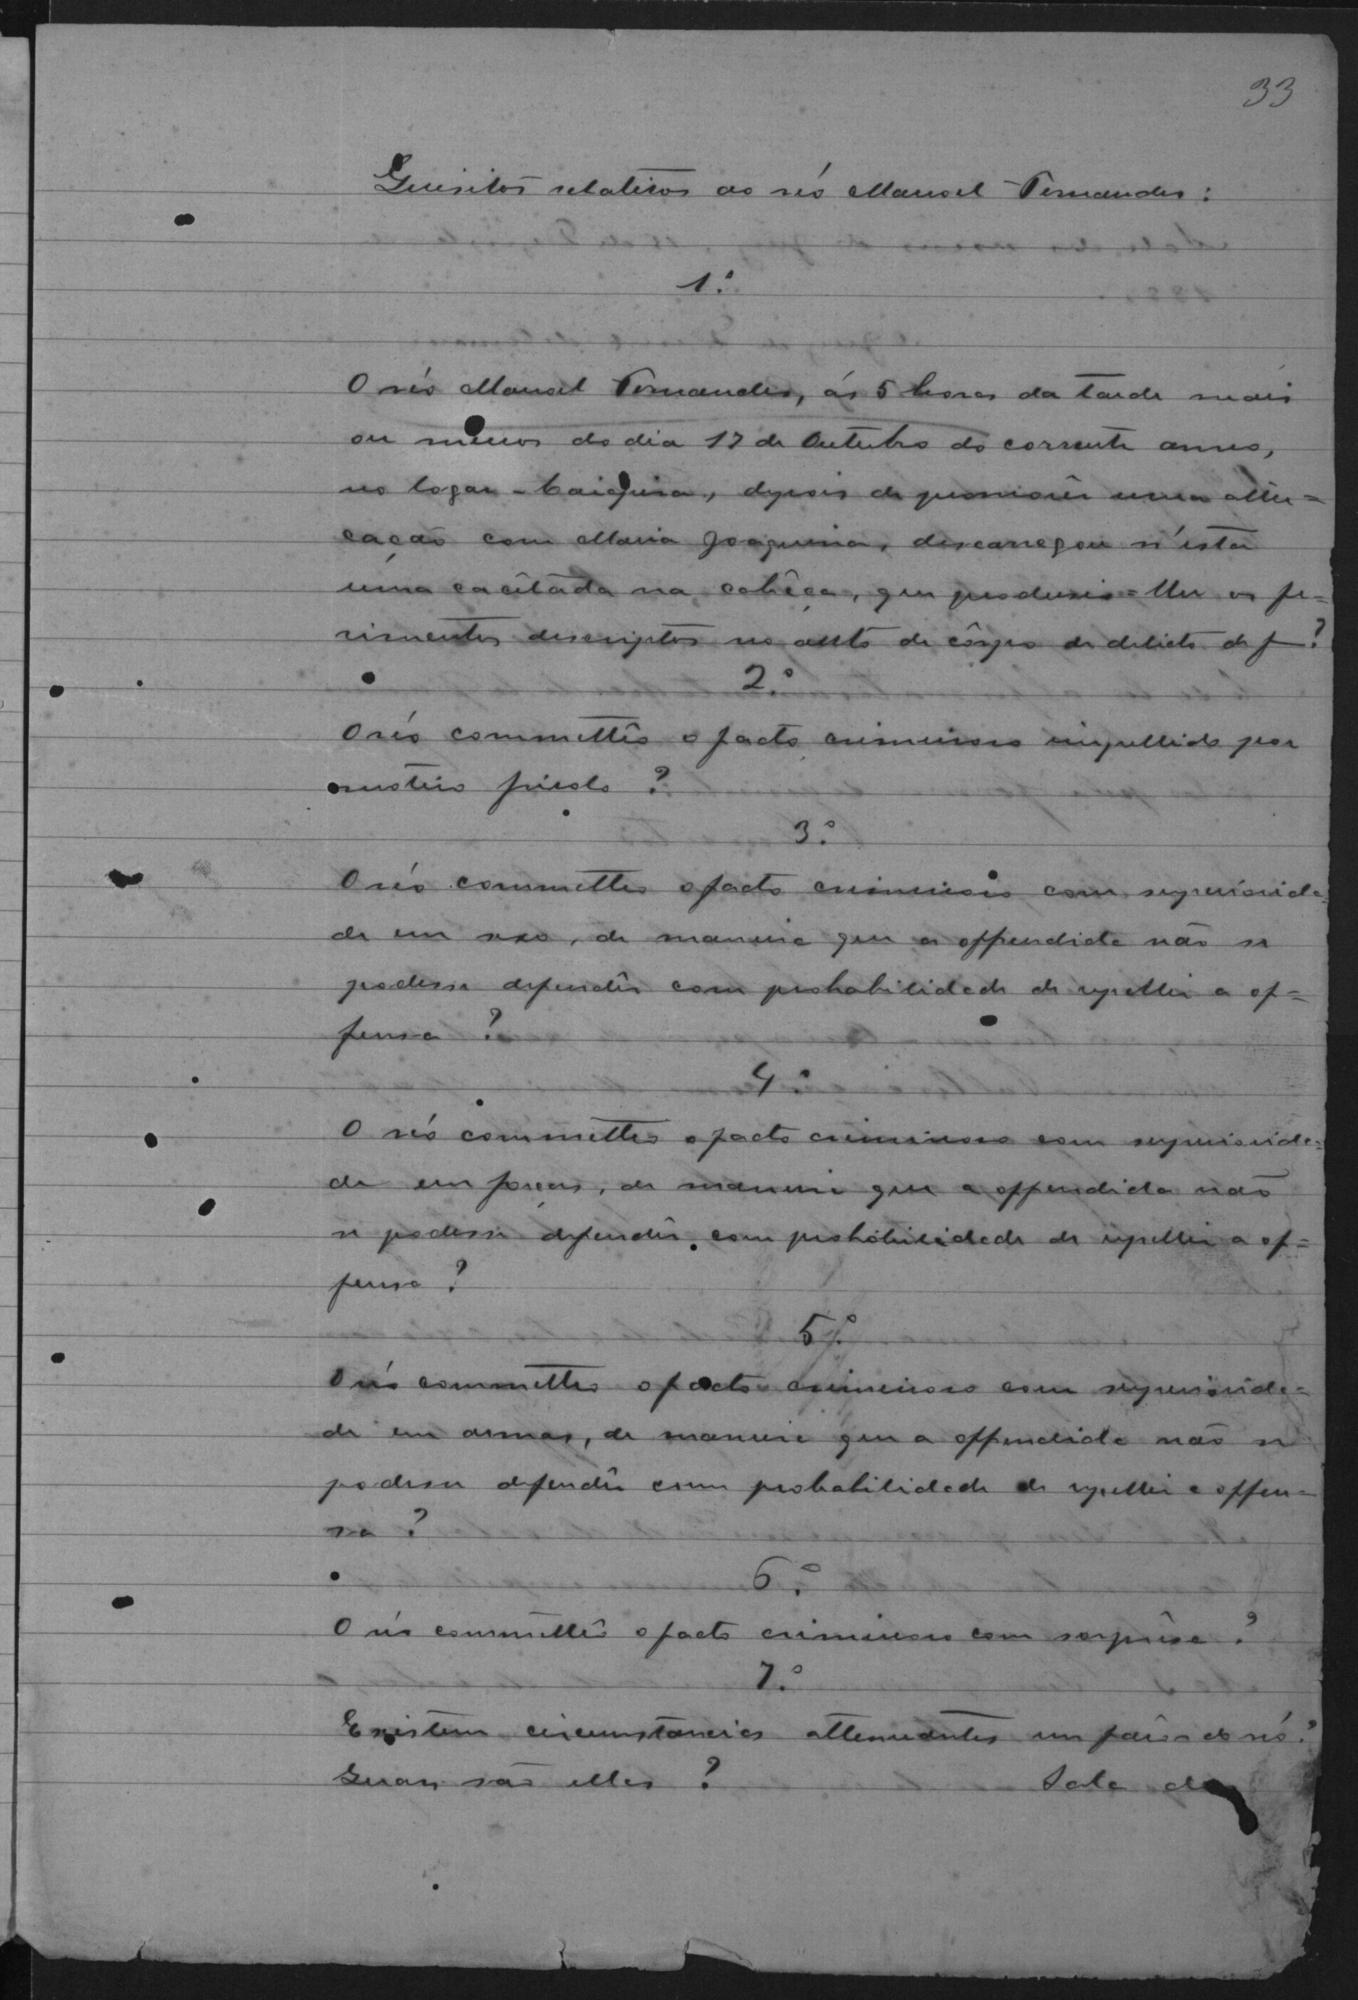 33
Quesitos relativos ao réo Manoel Fernandes:
1.º
O réo Manoel Fernandes, ás 5 horas da tarde mais
ou menos do dia 17 de Outubro do corrente anno,
no logar, depois de promovêr uma alter=
cação com Maria Joaquina, descarregou n'esta
uma cacêtada na cabêça, que produsio=lhe os fe=
rimentos descriptos no auto de côrpo de delicto de f ?
2.º
O réo committêo o facto criminoso impellido por
motivo frivolo ?
3.º
O réo committeo o facto criminoso com superiorida=
de em sexo, de maneira que a offendida não se
podesse defendêr com probabilidade de repellir a of=
fensa ?
4.º
O réo committeo o facto criminoso com superiorida=
de em forças, de maneira que a offendida não
se podesse defendêr com probabilidade de repellir a of=
fensa ?
5.º
O réo committeo o facto criminoso com superiorida=
de em armas, de maneira que a offendida não se
podesse defendêr com probabilidade de repellir a offen=
sa ?
6.º
O réo committêo o facto criminoso com sorprêsa ?
7.º
Existem circumstancias attenuantes em favôr do réo ?
Quaes são ellas ? Sala das